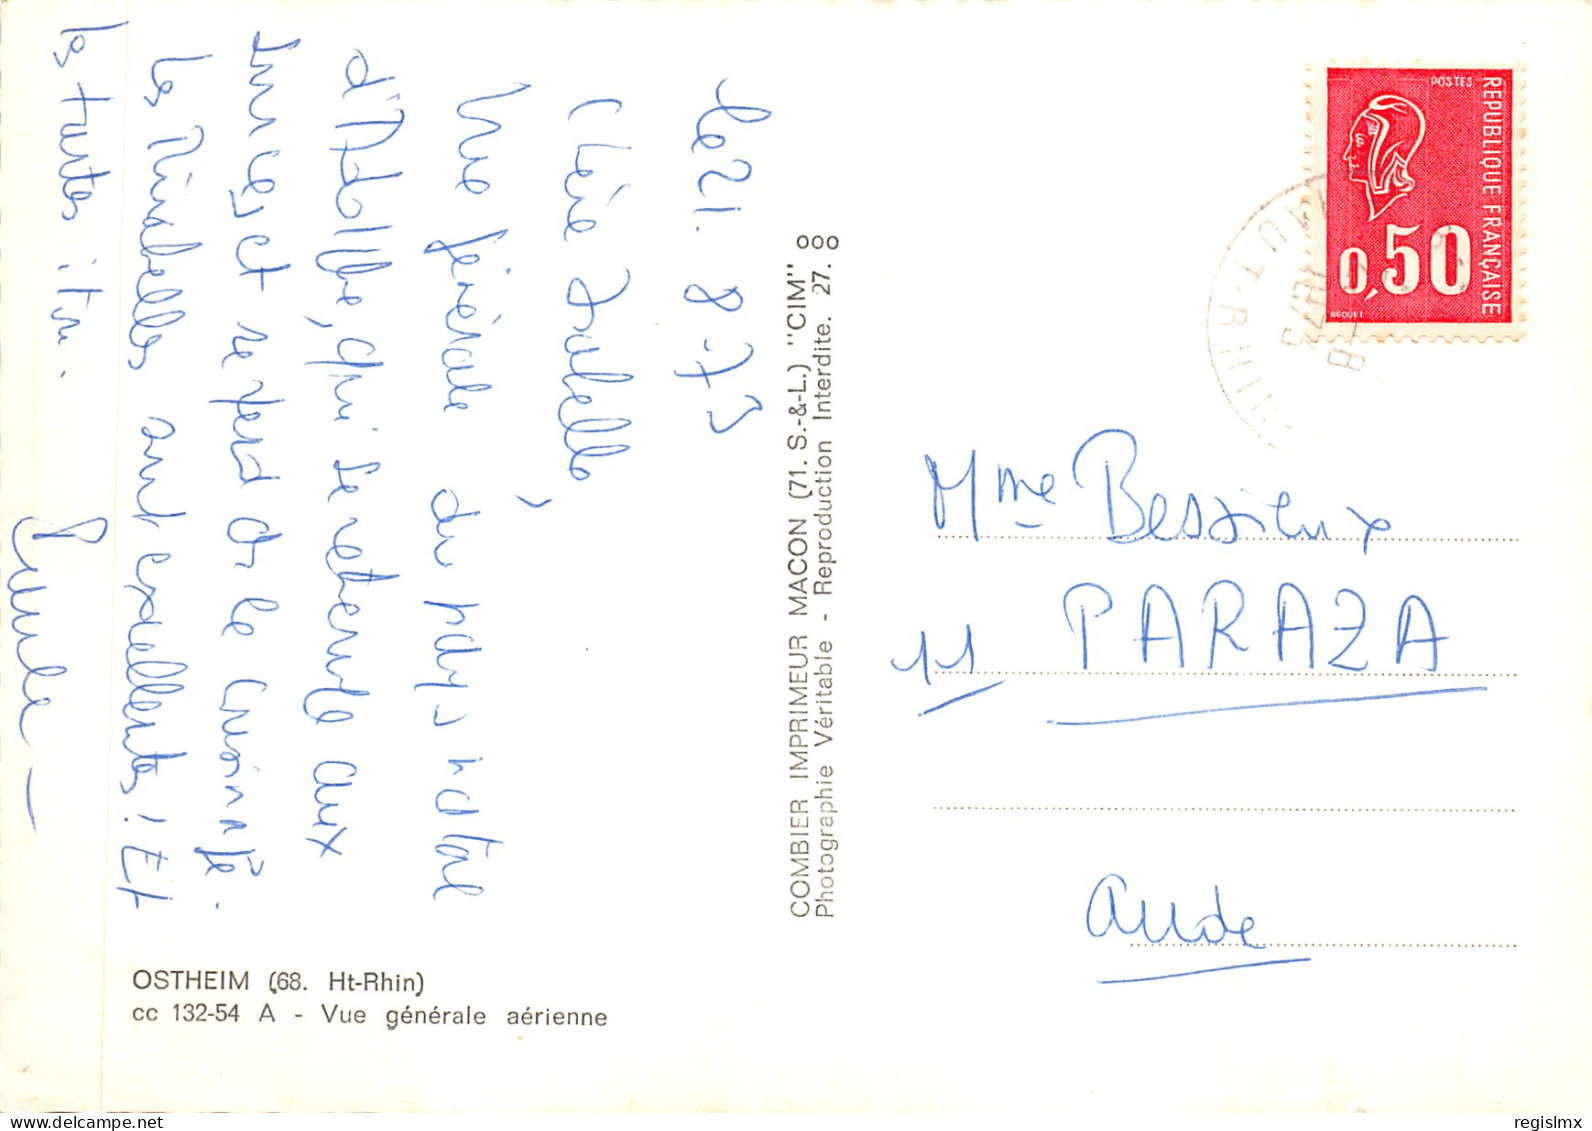 le 21. 8.73
Chère Isabelle,
Vue générale du pays natal
d'Adolphe, qui se retrempe aux
sources et se perd ds le cousinage.
Les Mirabelles sont excellentes ! Et
les tartes itou.
OSTHEIM (68. Ht-Rhin)
cc 132-54 A - Vue générale aérienne
COMBIER IMPRIMEUR MACON (71. S.-&-L.) "CIM"
Photographie Véritable - Reproduction Interdite. 27. 000
POSTES
REPUBLIQUE FRANÇAISE
0,50
BEQUET
HAUT-RHIN
Mme Bessieux
11 PARAZA
Aude
regislmx